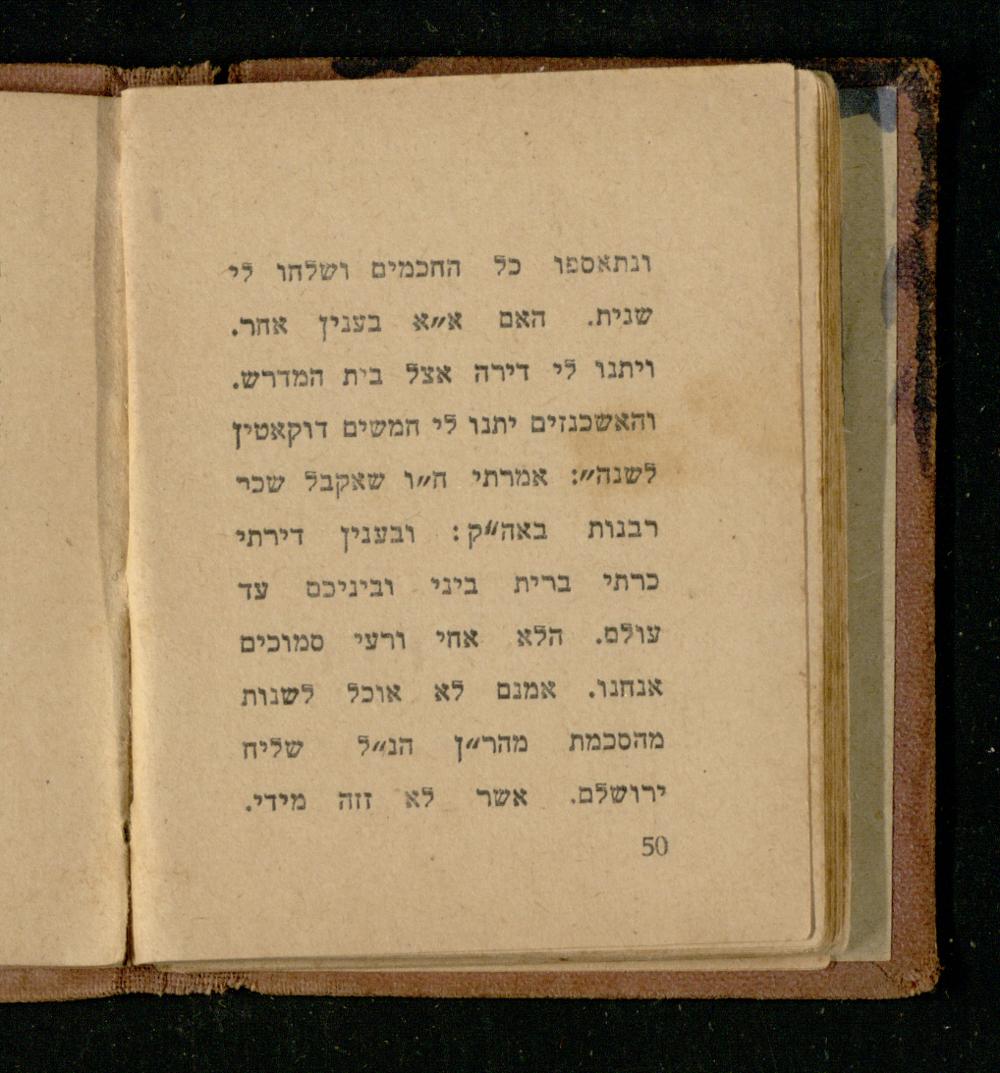 ונתאספו כל החכמים ושלחו לי
שנית. האם א״א בענין אחר.
ויתנו לי דירה אצל בית המדרש.
והאשכנזים יתנו לי חמשים דוקאטין
לשנה״: אמרתי ח״ו שאקבל שכר
רבנות באה״ק: ובענין דירתי
כרתי ברית ביני וביניכם עד
עולם. הלא אחי ורעי סמוכים
אנחנו. אמנם לא אוכל לשנות
מהסכמת מהר״ן הנ״ל שליח
ירושלם. אשר לא זזה מידי.
50